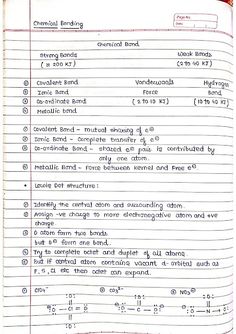 Page No.
Date
Chemical Bonding
Chemical Bond
Strong Bonds Weak Bonds
(≥ 200 KJ) (2 to 40 KJ)
① Covalent Bond Vanderwaals Hydrogen
② Ionic Bond Force Bond
③ Co-ordinate Bond (2 to 10 KJ) (10 to 40 KJ)
④ Metallic Bond
① Covalent Bond - mutual sharing of e⊖
② Ionic Bond - Complete transfer of e⊖
③ Co-ordinate Bond - shared e⊖ pair is contributed by
only one atom.
④ Metallic Bond - Force between Kernel and Free e⊖.
• Lewis Dot Structure :
① Identify the central atom and surrounding atom.
② Assign -ve charge to more electronegative atom and +ve
charge.
③ O atom form two bonds.
but O⊖ form one bond.
④ Try to complete octet and duplet of all atoms.
⑤ but if central atom contains vacant d-orbital such as
P, S, Cl etc then octet can expand.
① ClO₄⁻ ② CO₃²⁻ ③ NO₃⊖